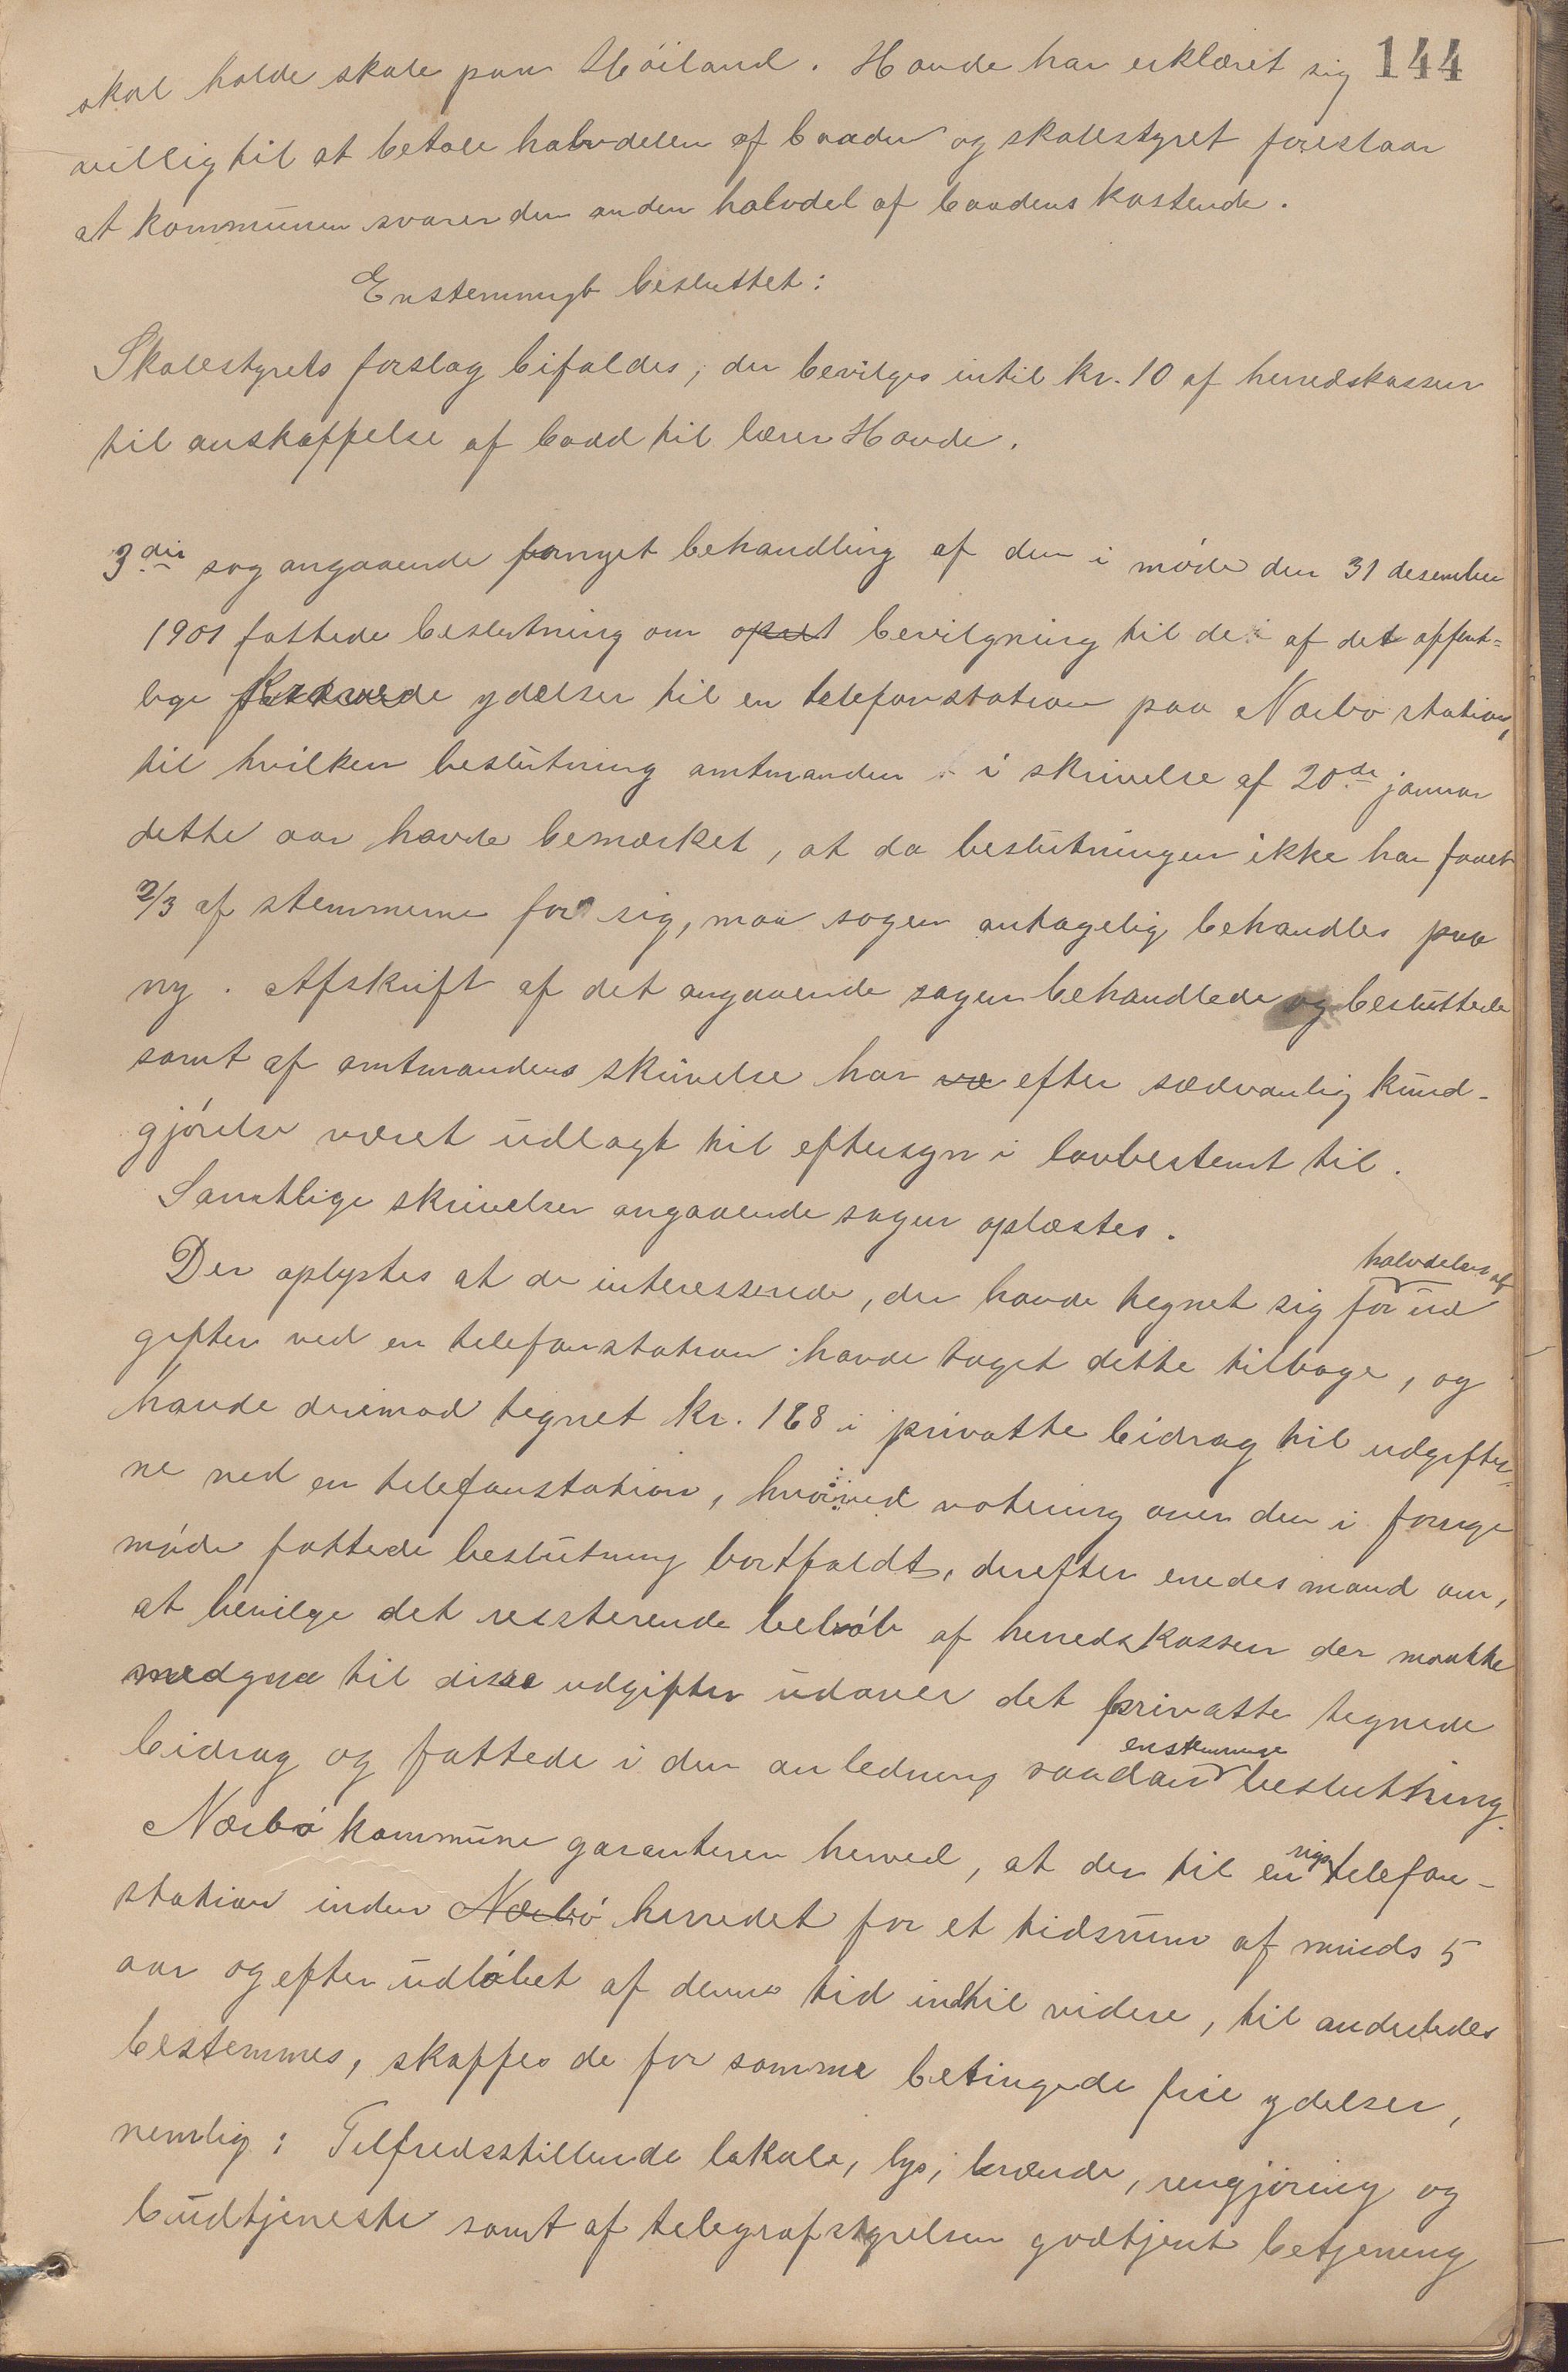 144
skal holde skole paa Høiland. Havde har erklæret sig
villig til at betale halvdelen af baaden og skolestyret foreslaar
at kommunen svarer den anden halvdel af baadens kostende.
Enstemmigt besluttet:
Skolestyrets forslag bifaldes, der bevilges intil kr. 10 af herredskassen
til anskaffelse af baad til lærer Havde.
3die sag angaaende fornyet behandling af den i møde den 31 desember
1901 fattede beslutning om bevilgning til de af det offent-
lige krævede ydelser til en telefonstation paa Nærbø station,
til hvilken beslutning amtmanden i skrivelse af 20de januar
dette aar havde bemærket, at da beslutningen ikke har faaet
2/3 af stemmerne for sig, maa sagen antagelig behandles paa
ny. Afskrift af det angaaende sagen behandlede og besluttede
samt af amtmandens skrivelse har væ efter sædvanlig kund-
gjørelse været udlagt til eftersyn i lovbestemt til.
Samtlige skrivelser angaaende sagen oplæstes.
halvdelen af
Der oplystes at de interesserede, der havde tegnet sig for ud
gifter ved en telefonstation havde taget dette tilbage, og
havde derimod tegnet kr. 168 i privatte bidrag til udgifter-
ne ved en telefonstation, hvorved votering over den i forrige
møde fattede beslutning bortfaldt, derefter enedes mand om,
at bevilge det resterende beløb af herredskassen der maatte
medgaa til disse udgifter udover det privatte tegnede
enstemmige
bidrag og fattede i den anledning saadan beslutning.
Nærbø kommune garanterer herved, at der til en rigstelefon-
station inden Nærbø herredet for et tidsrum af minds 5
aar og efter udløbet af denne tid indtil videre, til anderledes
bestemmes, skaffes de for samme betingede frie ydelser,
nemlig: Tilfredsstillende lokale, lys, brænde, rengjøring og
budtjeneste samt af telegrafstyrelsen godtjent betjening